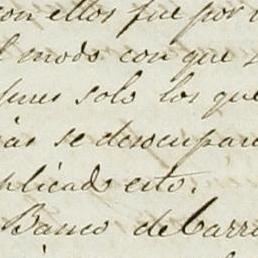 con ellos fue por
l modo con que
pues solo los que
más se desocupan
plicado esto.
Banco de Carr